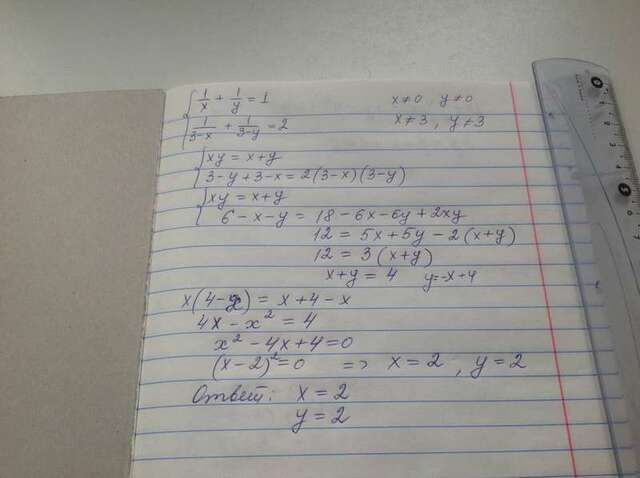 {1/x + 1/y = 1 x≠0 y≠0
{1/(3-x) + 1/(3-y) = 2 x≠3, y≠3
{xy = x+y
{3-y+3-x = 2(3-x)(3-y)
{xy = x+y
{6-x-y = 18-6x-6y+2xy
12 = 5x+5y-2(x+y)
12 = 3(x+y)
x+y = 4 y=-x+4
x(4-x) = x+4-x
4x-x² = 4
x²-4x+4=0
(x-2)²=0 => x=2, y=2
Ответ: x=2
y=2